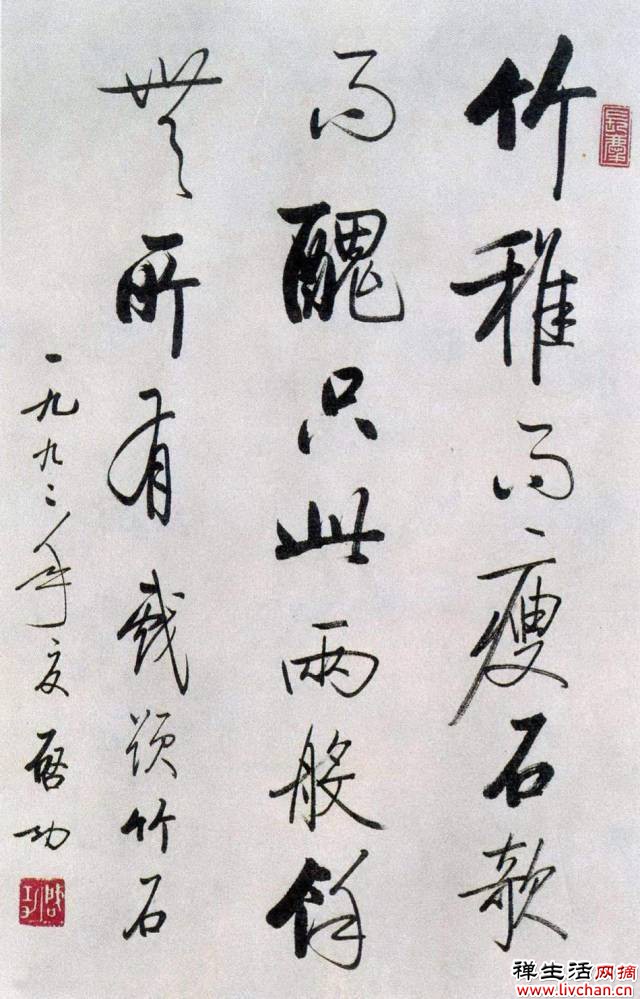 竹稚而瘦石欹
而醜只此兩般餘
無所有戲題竹石
一九九二年夏啓功
禅生活网摘
www.livchan.cn